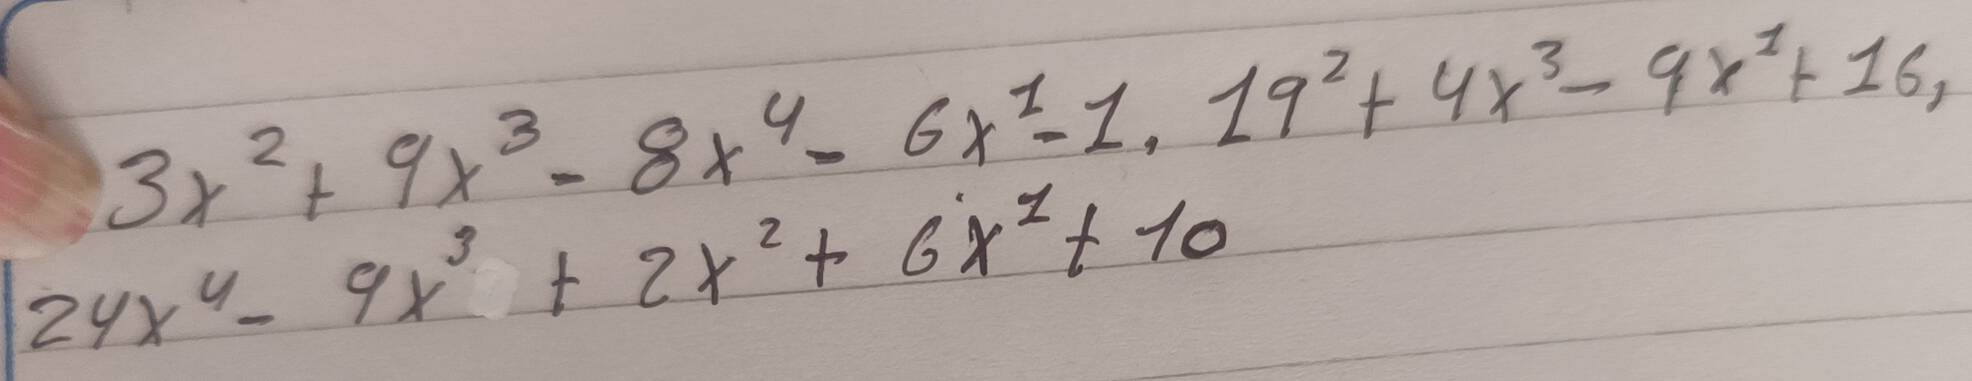 3x² + 9x³ - 8x⁴ - 6x¹ - 1, 19² + 4x³ - 9x¹ + 16,
24x⁴ - 9x³ + 2x² + 6x¹ + 10